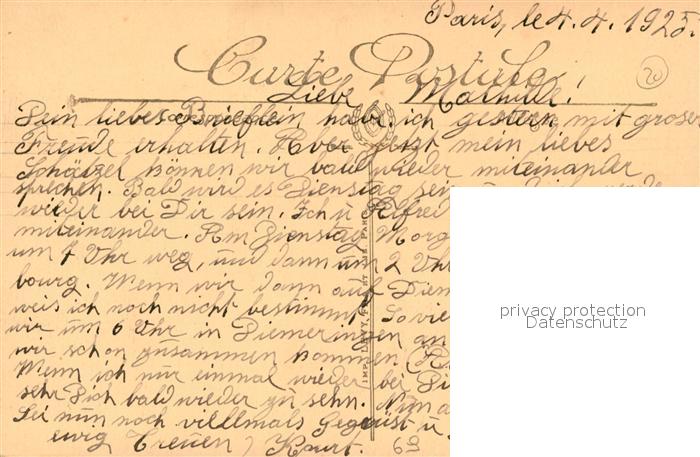 Paris, le 4.4.1925.
Carte Postale
20
Liebe Mathilde!
Dein liebes Brieflein habe ich gestern mit groser
Freude erhalten. Aber jetzt mein liebes
Schätzel können wir bald wieder miteinander
sprechen. Bald wird es Dienstag sein
wieder bei Dir sein. Ich u Alfred
miteinander. Am Dienstag Morg
um 7 Uhr weg, und dann um 2 Uhr
bourg. Wenn wir dann auf Diem
weis ich noch nicht bestimmt. So viel
wir um 6 Uhr in Diemeringen an
wir schon zusammen kommen
Wenn ich nur einmal wieder bei Di
sehr Dich bald wieder zu sehn. Nun a
Sei nun noch villmals Gegrüst u.
ewig Treuen Kurt.
69
privacy protection
Datenschutz